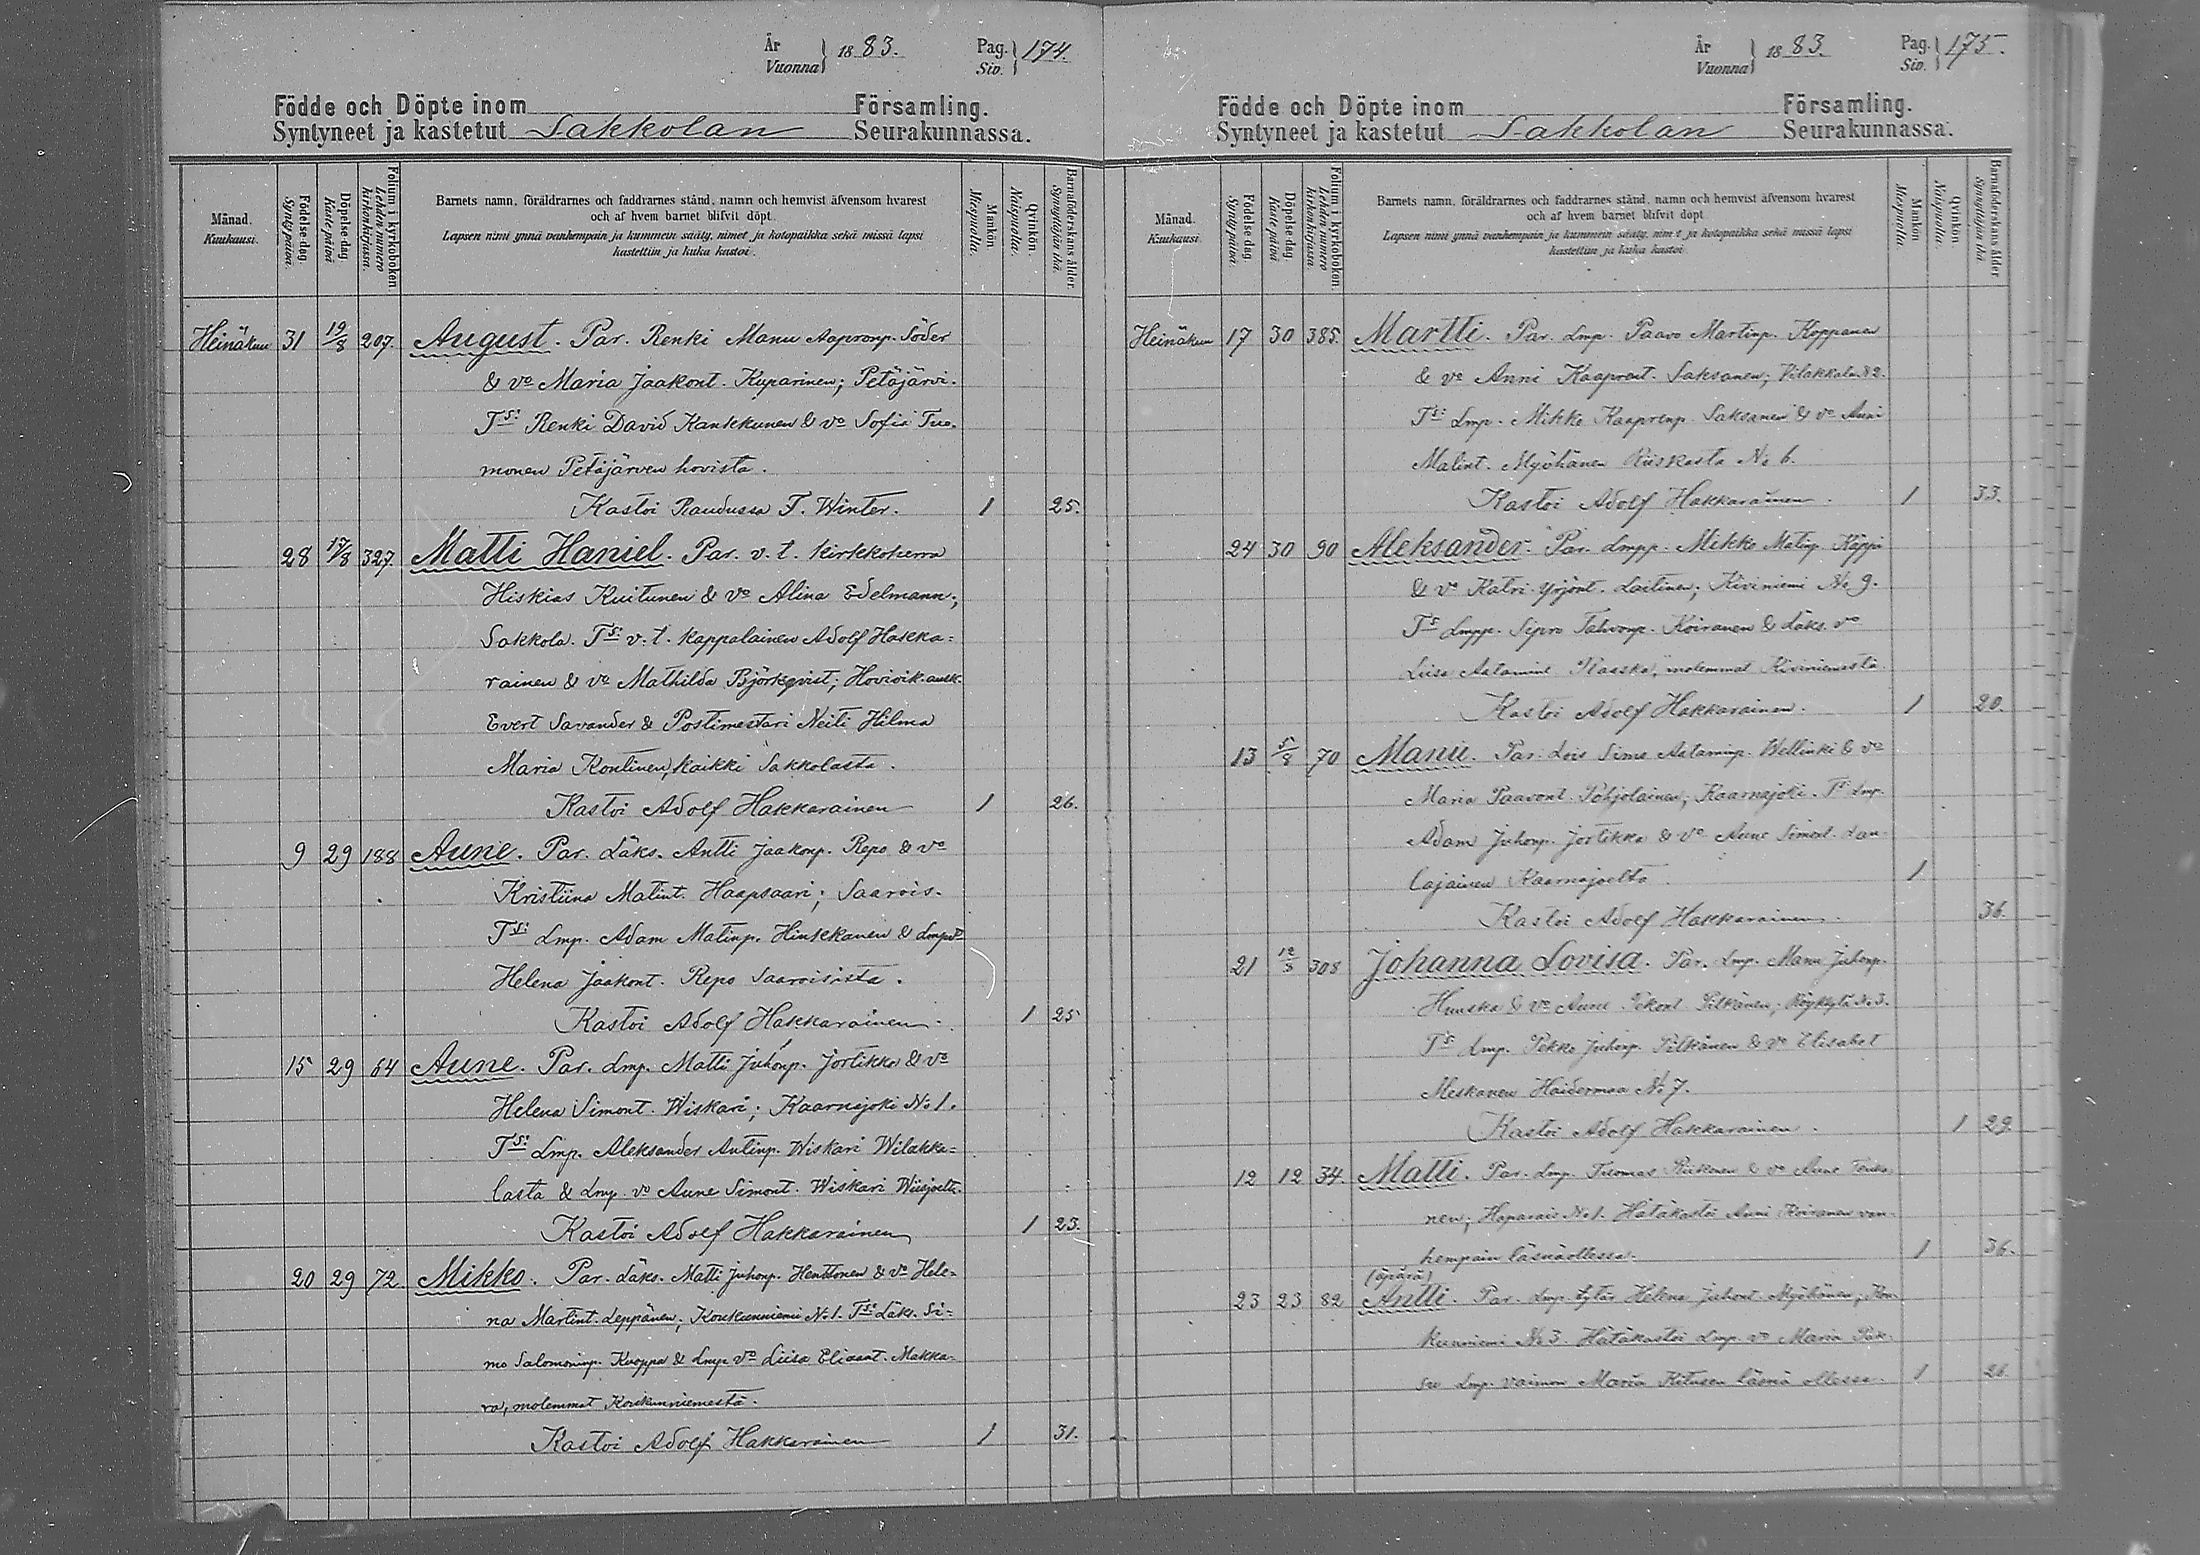 År
Vuonna } 1883. Pag.
Siv. } 174.
Födde och Döpte inom Församling.
Syntyneet ja kastetut Sakkolan Seurakunnassa.
Månad. Kuukausi.
Födelse-dag. Synty-päivä.
Döpelse-dag. Kaste-päivä
Folium i kyrkoboken. Lehden numero kirkonkirjassa.
Barnets namn, föräldrarnes och faddrarnes stånd, namn och hemvist äfvensom hvarest
och af hvem barnet blifvit döpt.
Lapsen nimi ynnä vanhempain ja kummein sääty, nimet ja kotopaikka sekä missä lapsi
kastettiin ja kuka kastoi.
Mankön. Miespuolia.
Qvinkön. Naispuolia.
Barnaföderskans ålder. Synnyttäjän ikä.
Heinäkuu 31 19/8 207. August. Par. Renki Manu Aapronp. Söder
& vo Maria Jaakont. Kuparinen; Petäjärvi.
Ts: Renki David Kankkunen & vo Sofia Tuo-
monen Petäjärven hovista.
Kastoi Raudussa F. Winter. 1 25.
28 17/8 327. Matti Haniel. Par. v. t. kirkkoherra
Hiskias Kuitunen & vo Alina Edelmann;
Sakkola. Ts: v. t. kappalainen Adolf Hakka=
rainen & vo Mathilda Björkqvist; Hovioik. ausk.
Evert Savander & Postimestari Neiti Hilma
Maria Kontinen, kaikki Sakkolasta.
Kastoi Adolf Hakkarainen 1 26.
9 29 188 Aune. Par. Läks. Antti Jaakonp. Repo & vo
Kristiina Matint. Haapsaari; Saarois.
Ts: Lmp. Adam Matinp. Hinkkanen & Lmp.
Helena Jaakont. Repo Saaroisista.
Kastoi Adolf Hakkarainen. 1 25
15 29 64 Aune. Par. Lmp. Matti Juhonp. Jortikka & vo
Helena Simont. Wiskari; Kaarnajoki No 1.
Ts: Lmp. Aleksander Antinp. Wiskari Wilakka=
lasta & Lmp. vo Aune Simont. Wiskari Wiisjoelta.
Kastoi Adolf Hakkarainen 1 23.
20 29 72. Mikko. Par. Läks. Matti Juhonp. Henttonen & vo Hele=
na Martint. Leppänen; Koukunniemi No 1. Ts: Läks. Si=
mo Salomoninp. Kuoppa & Lmp. vo Liisa Eliaant. Makka-
ra, molemmat Koukunniemestä.
Kastoi Adolf Hakkarainen 1 31.
År
Vuonna } 1883. Pag.
Siv. } 175.
Födde och Döpte inom Församling.
Syntyneet ja kastetut Sakkolan Seurakunnassa.
Månad. Kuukausi
Födelse-dag Synty-päivä.
Döpelse-dag Kaste-päivä
Folium i kyrkoboken. Lehden numero kirkonkirjassa
Barnets namn, föräldrarnes och faddrarnes stånd, namn och hemvist äfvensom hvarest
och af hvem barnet blifvit döpt
Lapsen nimi ynnä vanhempain ja kummein sääty, nimet ja kotopaikka sekä missä lapsi
kastettiin ja kuka kastoi
Mankön Miespuolia.
Qvinkön Naispuolia.
Barnaföderskans ålder Synnyttäjän ikä.
Heinäkuu 17 30 385. Martti. Par. Lmp. Paavo Martinp. Koppanen
& vo Anni Kaaprent. Saksanen; Vilakkala No 2.
Ts: Lmp. Mikko Kaaprenp. Saksanen & vo Anni
Malint. Myöhänen Riiskasta No 6.
Kastoi Adolf Hakkarainen. 1 33.
24 30 90 Aleksander. Par. Lmpp. Mikko Matinp. Käppi
& vo Katri Yrjönt. Laitinen; Kiviniemi No 9.
Ts Lmpp. Sipro Tahvonp. Koiranen & Läks. vo
Liisa Aatamint. Raaska, molemmat Kiviniemestä.
Kastoi Adolf Hakkarainen. 1 20.
13 5/8 70 Manu. Par. Lois Simo Aataminp. Wellinki & vo
Maria Paavont. Pohjolainen; Kaarnajoki. Ts Lmp.
Adam Juhonp. Jortikka & vo Aune Simont. Lau-
lajainen Kaarnajoelta. 1
Kastoi Adolf Hakkarainen. 36.
21 12/8 308 Johanna Lovisa. Par. Lmp. Manu Juhonp.
& vo Aune Pekont. Pitkänen; Röykkylä No 3.
Ts: Lmp. Pekko Juhonp. Pitkänen & vo Elisabet
Meskanen Haidermaa No 7.
Kastoi Adolf Hakkarainen. 1 29.
12 12 34. Matti. Par. Lmp. Tuomas Riikonen & vo Aune
nen; Haparais No 1. Hätäkastoi Anni Koiranen van-
hempain läsnäollessa. 1 36.
(äpärä)
23 23 82 Antti. Par. Lmp. tytär Helena Juhont. Myöhänen; Kou-
kunniemi No 3. Hätäkastoi Lmp. vo Maria
Lmp. vaimon Maria Kitusen läsnä ollessa. 1 26.